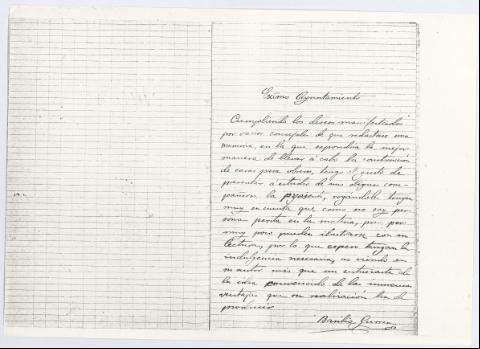 Exsmo Ayuntamiento
Cumpliendo los deseos manifestados
por varios concejales de que redactase una
memoria, en la que expondria la mejor
manera de llevar á cabo la construcción
de casas para obreros, tengo el gusto de
presentar á estudio de mis dignos com-
pañeros la presente, rogandoles tengan
muy en cuenta que como no soy per-
sona perita en la materia,
muy poco pueden ilustrarse con su
lectura, por lo que espero tengan la
indulgencia necesaria, no viendo en
su autor más que un entusiasta de
la idea convencido de las inmensas
ventajas que su realización ha de
producir